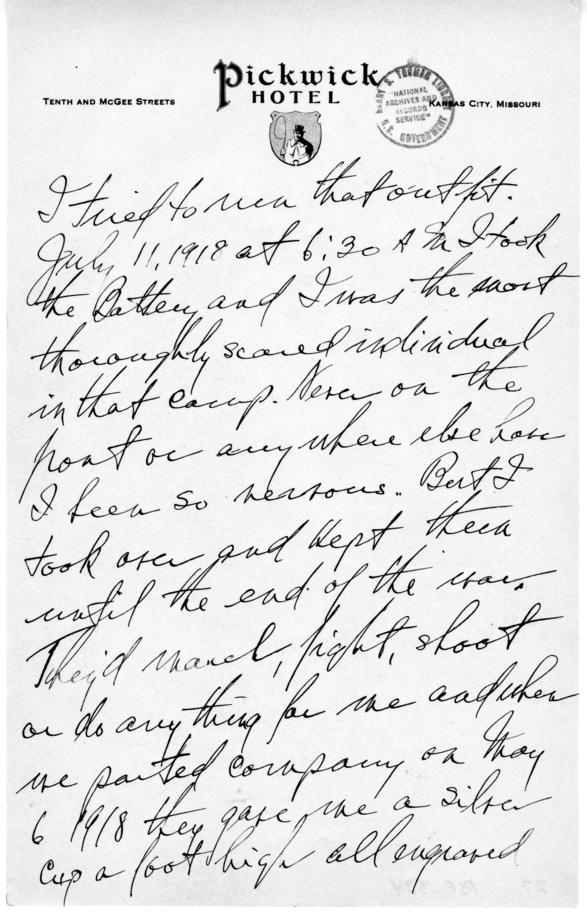 Pickwick
HOTEL
TENTH AND MCGEE STREETS
KANSAS CITY, MISSOURI
HARRY S. TRUMAN LIBRARY
"NATIONAL
ARCHIVES AND
RECORDS
SERVICE"
U.S. GOVERNMENT
I tried to run that outfit.
July 11, 1918 at 6:30 A M I took
the Battery and I was the most
thoroughly scared individual
in that camp. Never on the
front or anywhere else have
I been so nervous. But I
took over and kept them
until the end of the war.
They'd march, fight, shoot
or do anything for me and when
we parted company on May
6 1918 they gave me a silver
cup a foot high all engraved